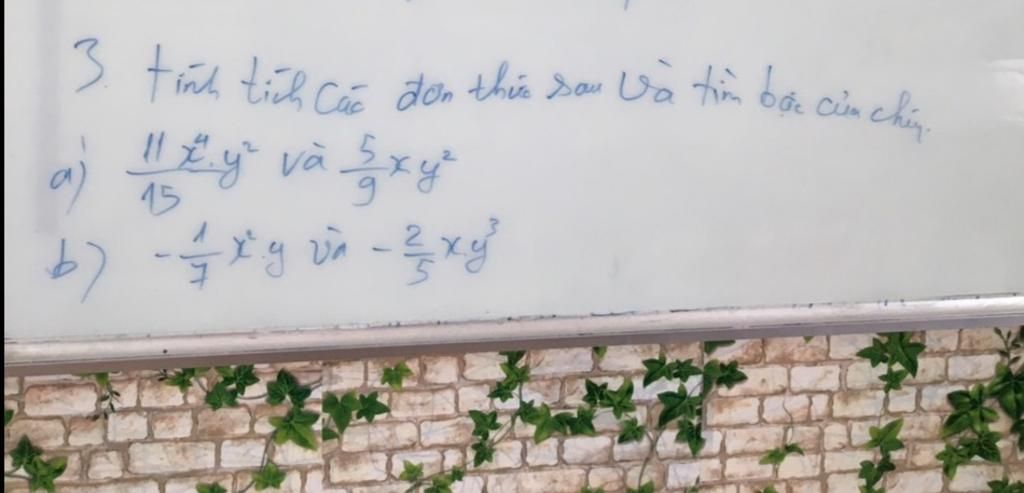 3. Tính tích các đơn thức sau và tìm bậc của chúng.
a) 11x⁴.y²/15 và 5/9 xy²
b) -1/7 x².y và -2/5 x.y³